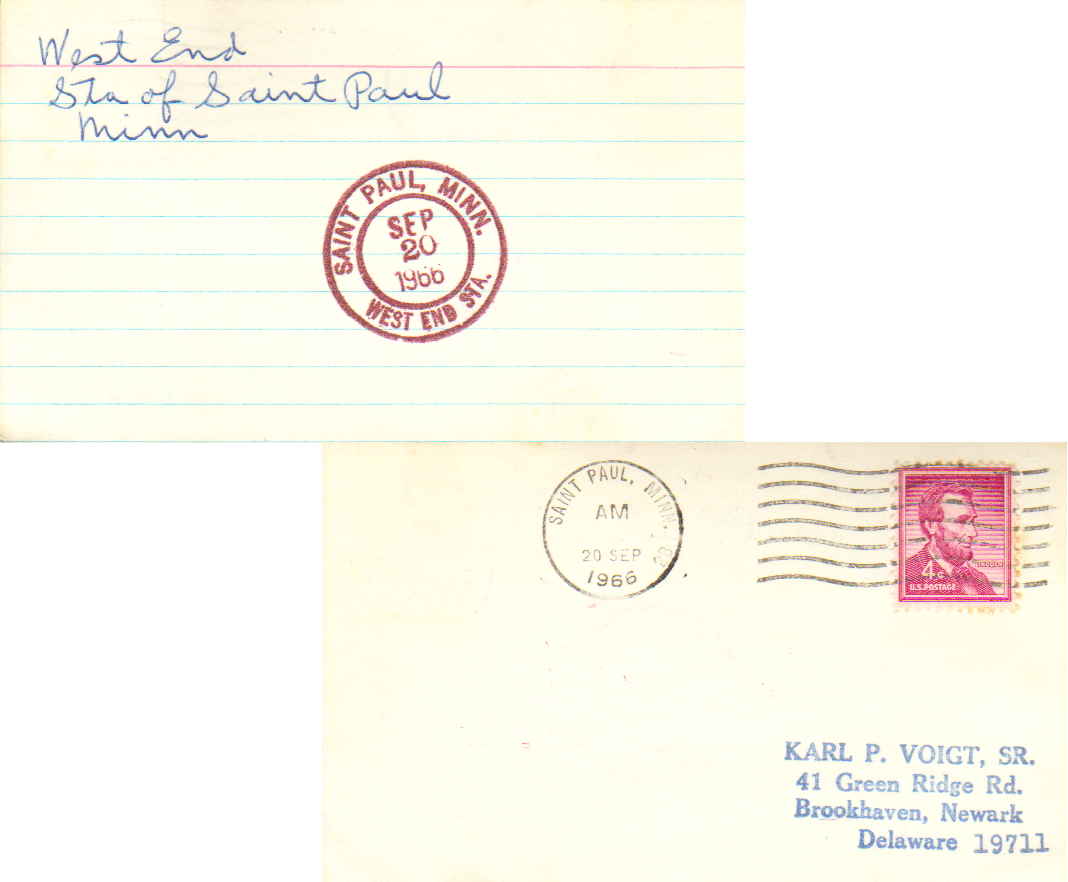 West End
Sta of Saint Paul
Minn
SAINT PAUL, MINN.
SEP
20
1966
WEST END STA.
SAINT PAUL, MINN.
AM
20 SEP
1966
LINCOLN
4¢
U.S. POSTAGE
KARL P. VOIGT, SR.
41 Green Ridge Rd.
Brookhaven, Newark
Delaware 19711